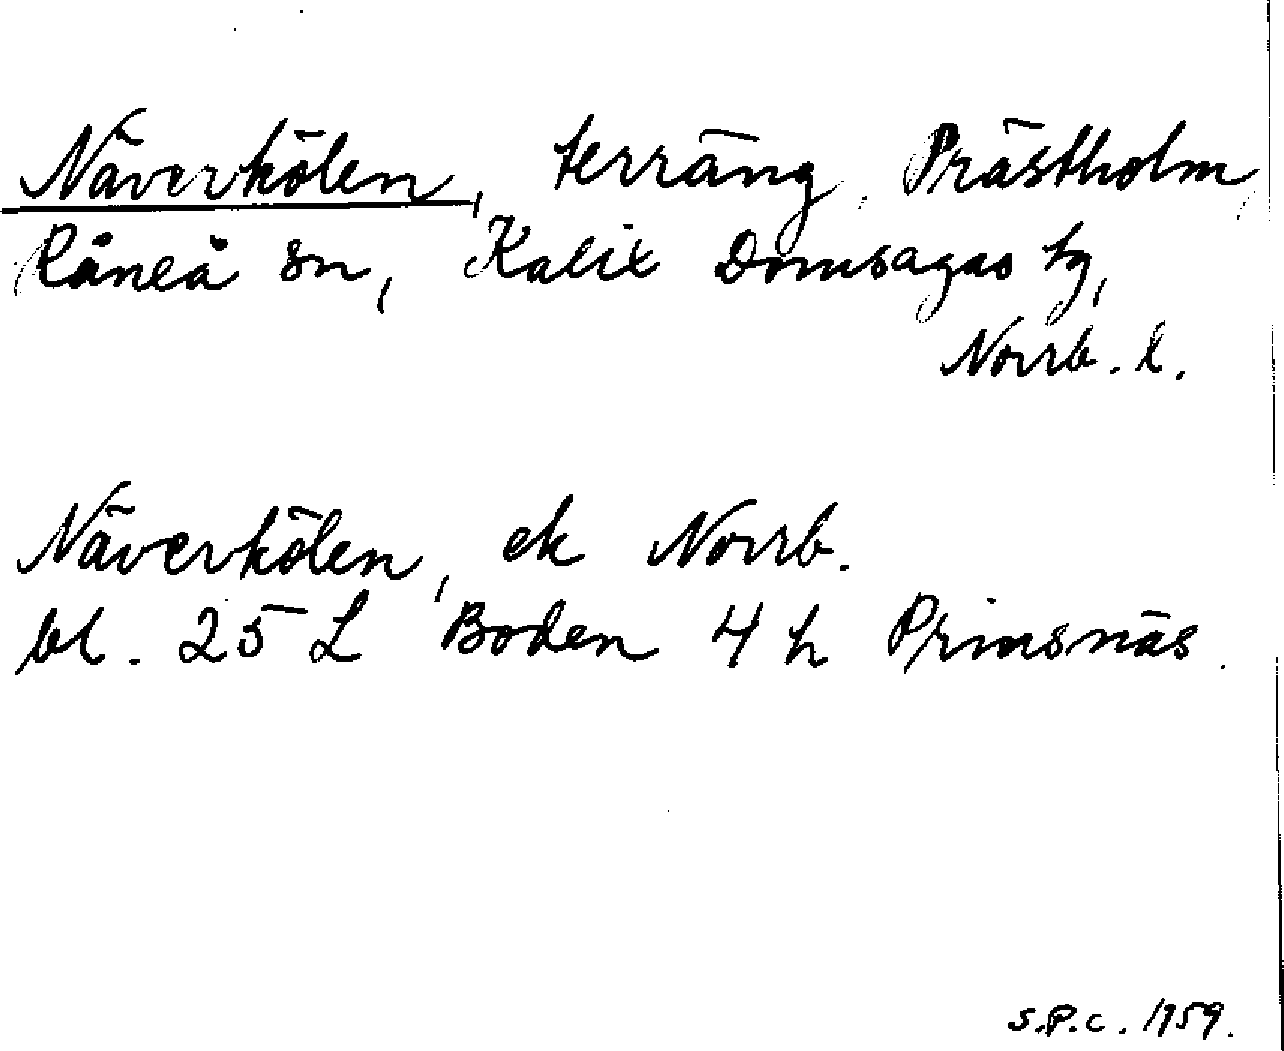 Näverkölen, terräng, Prästholm,
Råneå sn, Kalix Domsagas tg,
Norrb. l.
Näverkölen, ek Norrb.
bl. 25 L Boden 4 h Prinsnäs.
S.P.C. 1959.